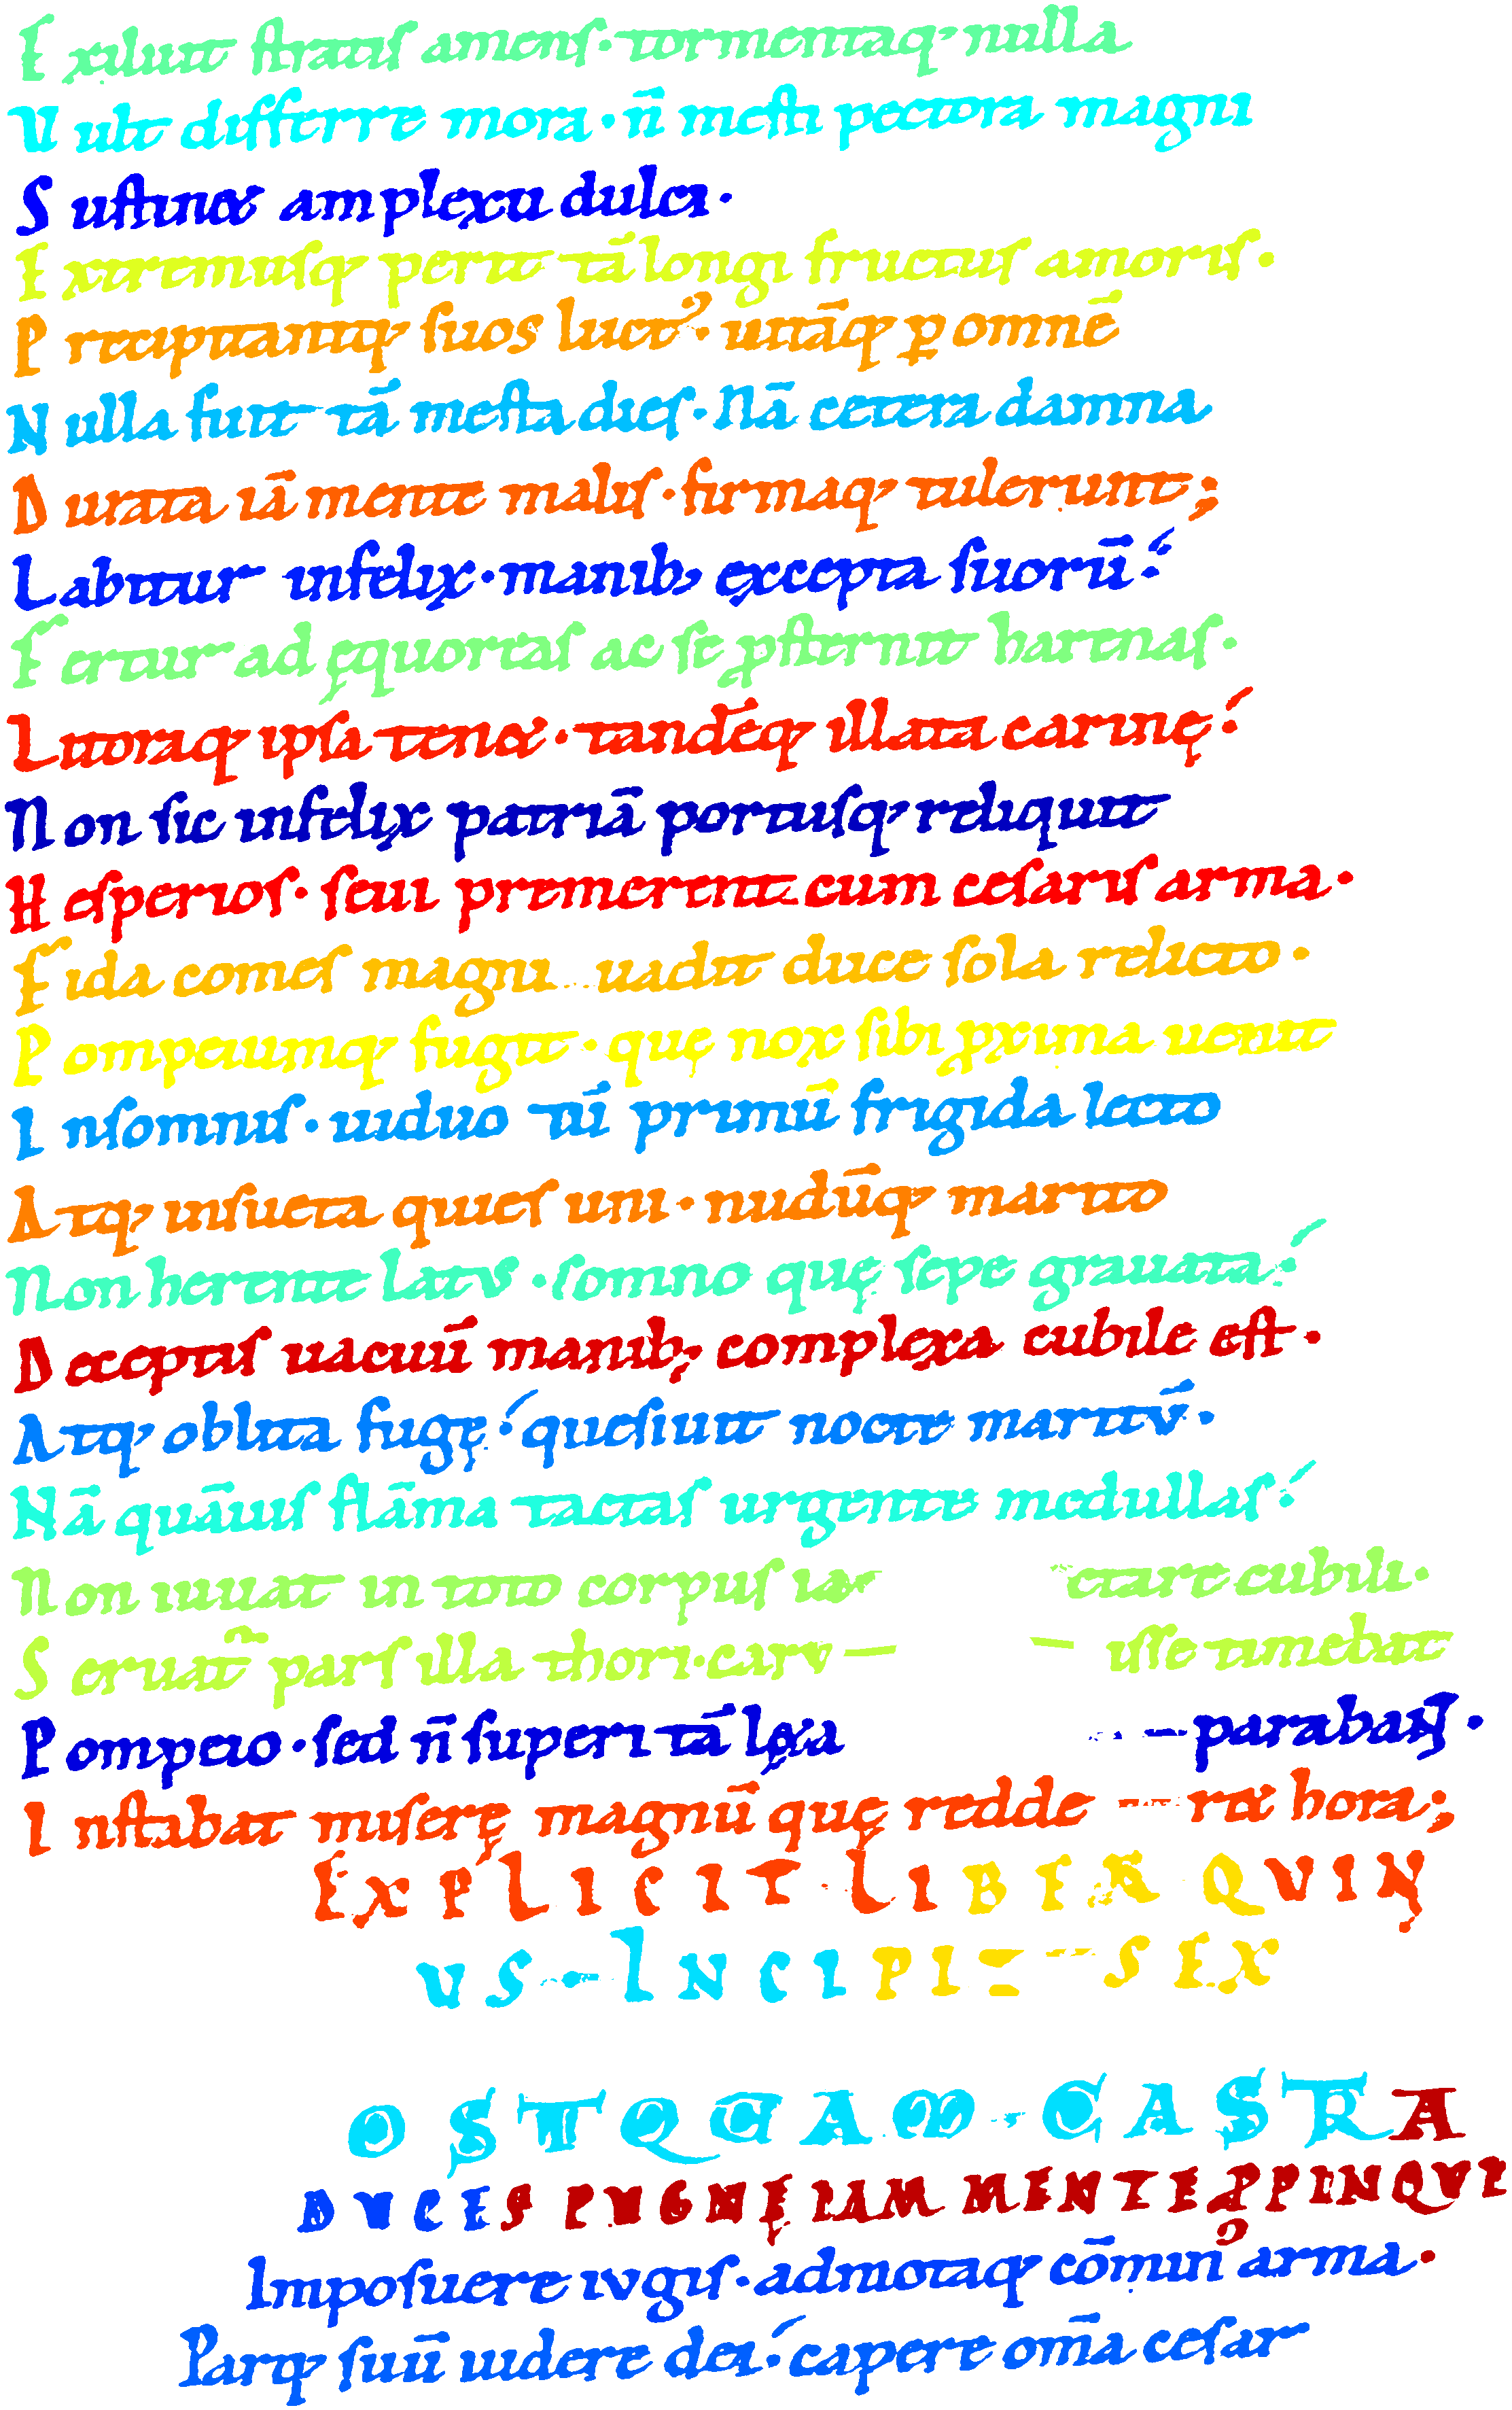 E xiluit stratis amens· tormentaq; nulla
V ult differre mora· n̄ mesti pectora magni
S ustin& amplexu dulci·
E xtremusq; perit tā longi fructus amoris·
P recipitantq; suos luct᾿· uitāq; ꝑ omnē
N ulla fuit tā mesta dies· Nā cetera damna
D urata iā mente malis· firmaq; tulerunt;
L abitur infelix· manib; excepta suorū:
F ertur ad ęquoreas ac se ꝓsternit harenas·
L itoraq; ipsa ten&· tandēq; illata carinę:
N on sic infelix patriā portusq; reliquit
H esperios· seui premerent cum cesaris arma·
F ida comes magni uadit duce sola relicto·
P ompeiumq; fugit· quę nox sibi ꝓxima uenit
I nsomnis· uiduo tū primū frigida lecto
A tq; insueta quies uni· nudūq; marito
N on herente latus· somno quę sepe grauata:
D eceptis uacuū manib; complexa cubile est·
A tq; oblita fugę: quesiuit nocte maritū·
N ā quāuis flāma tactas urgente medullas:
N on iuuat in toto corpus ctare cubili·
S eruat᾿ pars illa thori· timebat
P ompeio· sed n̄ superi tā l&a parabant·
I nstabat miserę magnū quę redde r& hora;
EXPLICIT LIBER QUIN
VS INCIPIT SEX
OSTQUAM CASTRA
DUCES PUGNĘ IAM MENTE ꝒPINQUI
Imposuere iugis· admotaq; cōmin᾿ arma·
Parq; suū uidere dei: capere om̄a cesar